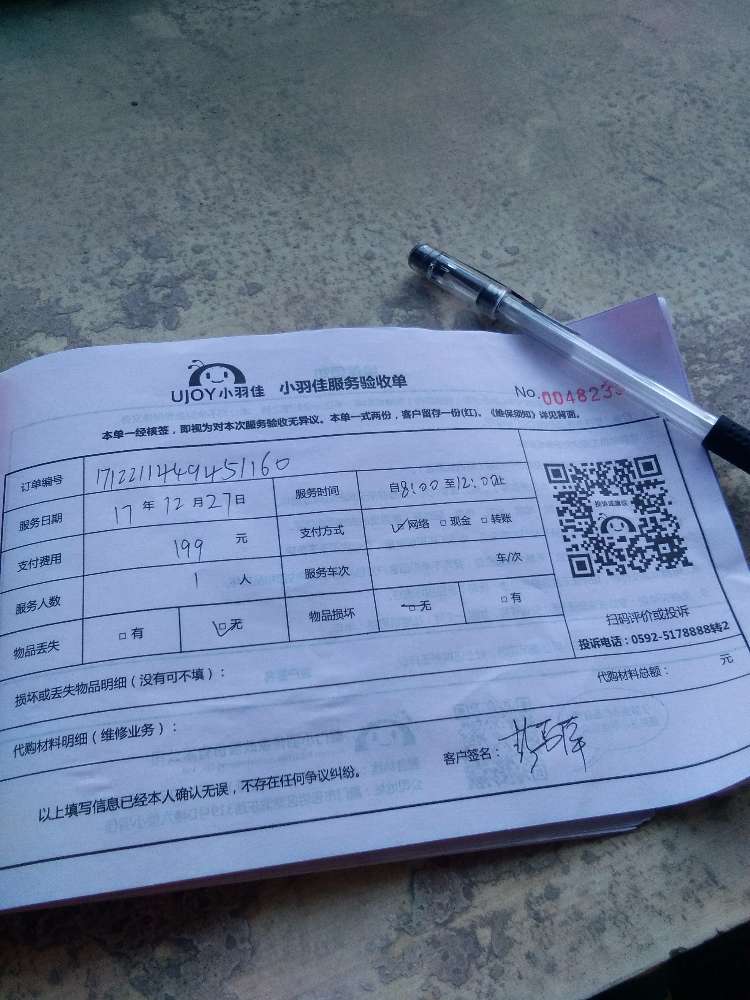 UJOY小羽佳 小羽佳服务验收单
No. 004823
本单一经核签，即视为对本次服务验收无异议。本单一式两份，客户留存一份(红)。《维保须知》详见背面。
订单编号 171221144945 1160
服务日期 17 年 12 月 27 日 服务时间 自 8:00 至 12:00 止
支付费用 199 元 支付方式 ☑网络 □现金 □转账
服务人数 1 人 服务车次 车/次
物品丢失 □有 ☑无 物品损坏 ☑无 □有
投诉或建议
扫码评价或投诉
投诉电话：0592-5178888转2
损坏或丢失物品明细（没有可不填）：
代购材料明细（维修业务）：
代购材料总额： 元
以上填写信息已经本人确认无误，不存在任何争议纠纷。
客户签名：